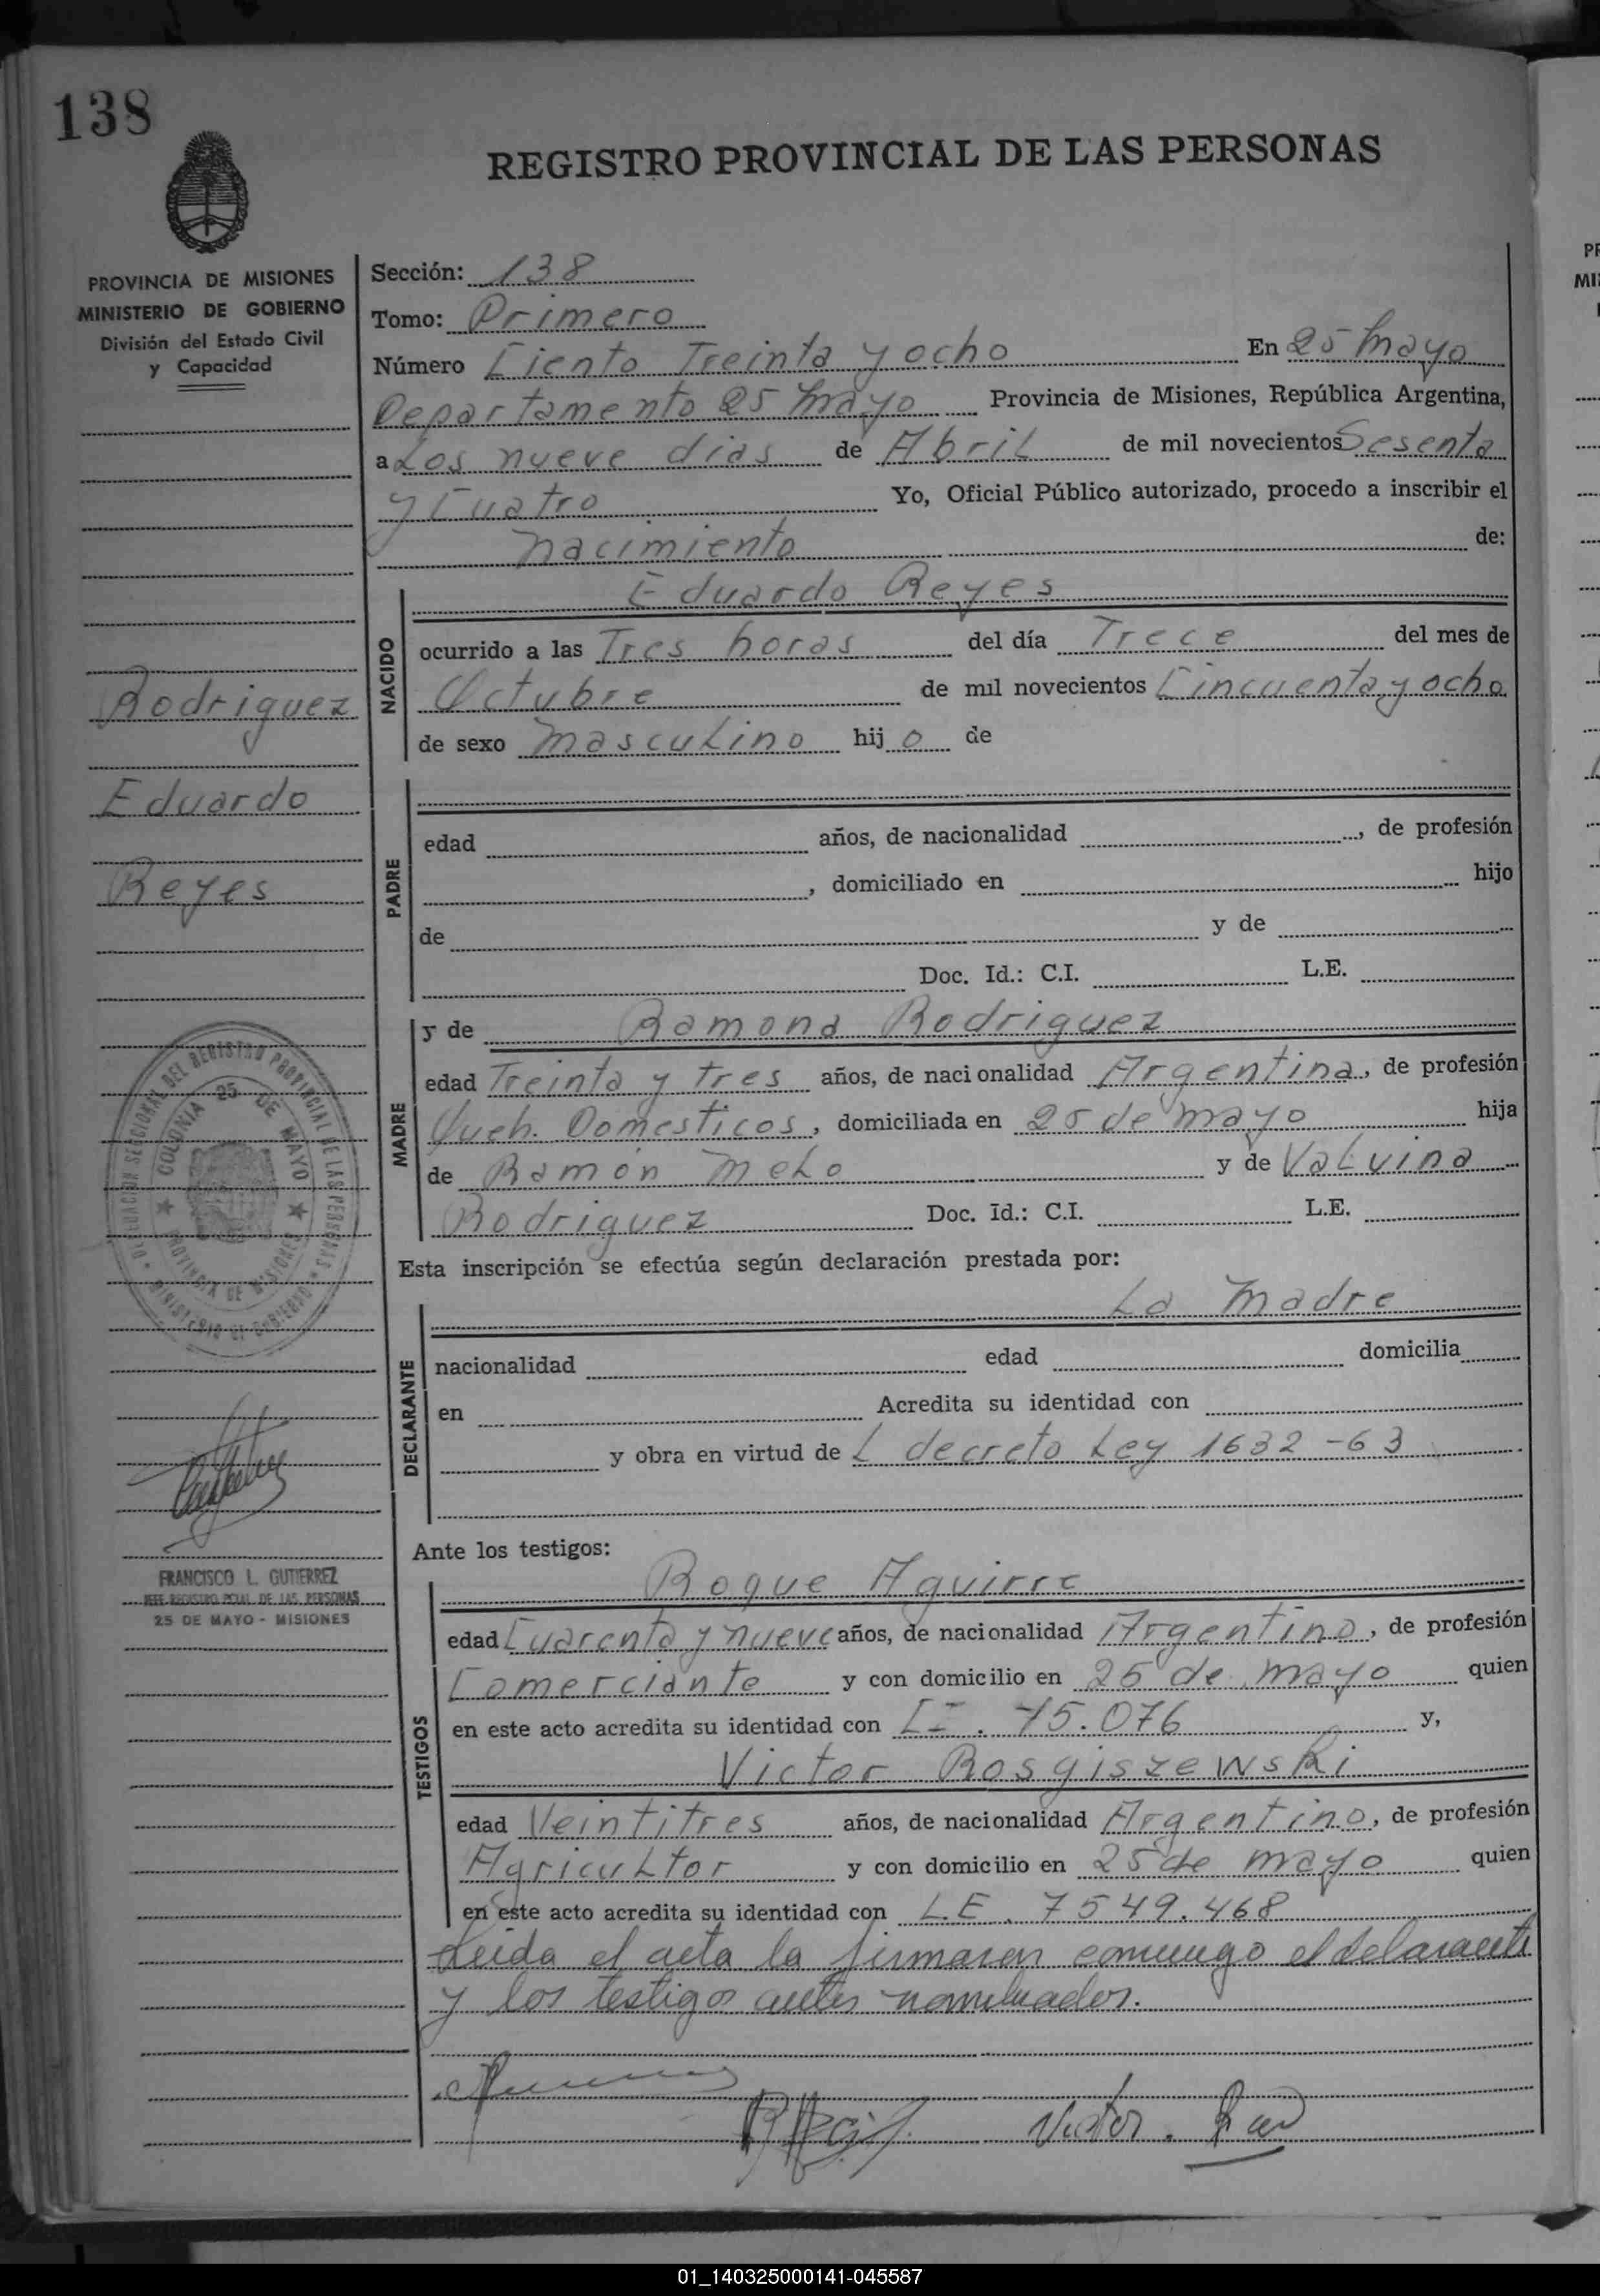 138
REGISTRO PROVINCIAL DE LAS PERSONAS
PROVINCIA DE MISIONES
MINISTERIO DE GOBIERNO
División del Estado Civil
y Capacidad
Sección: 138
Tomo: Primero
Número Ciento Treinta y ocho En 25 Mayo
Departamento 25 Mayo Provincia de Misiones, República Argentina,
a Los nueve dias de Abril de mil novecientos Sesenta
y Cuatro Yo, Oficial Público autorizado, procedo a inscribir el
nacimiento de:
Eduardo Reyes
NACIDO
ocurrido a las Tres horas del día Trece del mes de
Octubre de mil novecientos Cincuenta y ocho
de sexo masculino hijo de
Rodriguez
Eduardo
Reyes
PADRE
edad años, de nacionalidad , de profesión
, domiciliado en hijo
de y de
Doc. Id.: C.I. L.E.
MADRE
y de Ramona Rodriguez
edad Treinta y tres años, de nacionalidad Argentina, de profesión
Queh. Domesticos, domiciliada en 25 de mayo hija
de Ramón Melo y de Valvina
Rodriguez Doc. Id.: C.I. L.E.
DELEGACION SECCIONAL DEL REGISTRO PROVINCIAL DE LAS PERSONAS
COLONIA 25 DE MAYO
PROVINCIA DE MISIONES
MINISTERIO DE GOBIERNO
Esta inscripción se efectúa según declaración prestada por:
La Madre
DECLARANTE
nacionalidad edad domicilia
en Acredita su identidad con
y obra en virtud de L decreto Ley 1632-63
FRANCISCO L. GUTIERREZ
JEFE REGISTRO PCIAL. DE LAS PERSONAS
25 DE MAYO - MISIONES
Ante los testigos:
TESTIGOS
Roque Aguirre
edad Cuarenta y nueve años, de nacionalidad Argentino, de profesión
Comerciante y con domicilio en 25 de mayo quien
en este acto acredita su identidad con 75.076 y,
Victor Rosgiszewski
edad Veintitres años, de nacionalidad Argentino, de profesión
Agricultor y con domicilio en 25 de mayo quien
en este acto acredita su identidad con L.E. 7549.468
Leida el acta la firmaron conmigo el delarante
y los testigos antes nombrados.
Victor.
01_140325000141-045587